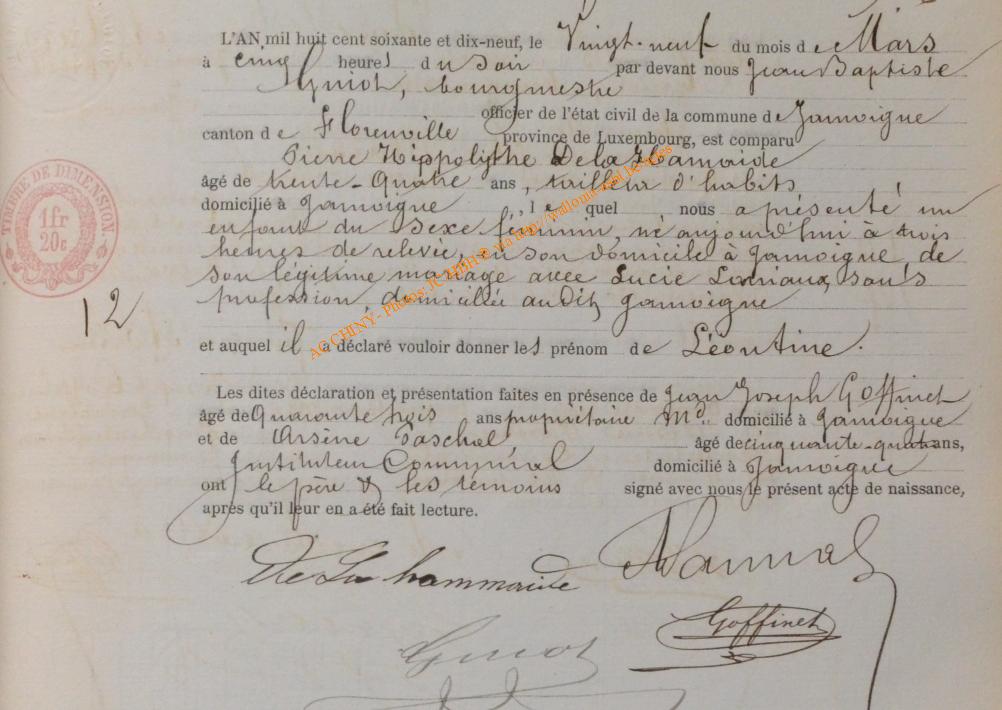 L'AN mil huit cent soixante et dix-neuf, le Vingt-neuf du mois de Mars
à cinq heures du Soir par devant nous Jean Baptiste
Guiot, bourgmestre
officier de l'état civil de la commune de Jamoigne
canton de Florenville province de Luxembourg, est comparu
Pierre Hippolythe De la Hamaide
âgé de trente-quatre ans, tailleur d'habits
domicilié à Jamoigne, le quel nous a présenté un
enfant du Sexe féminin, né aujourd'hui à trois
heures de relevée, en son domicile à Jamoigne, de
son légitime mariage avec Lucie Laniaux, sans
profession, domiciliée audit Jamoigne
12
et auquel il a déclaré vouloir donner les prénom de Léontine.
Les dites déclaration et présentation faites en présence de Jean Joseph Goffinet
âgé de Quarante trois ans propriétaire Md domicilié à Jamoigne
et de Arsène Paschal âgé de cinquante-quatre ans,
Instituteur Communal domicilié à Jamoigne
ont le père & les témoins signé avec nous le présent acte de naissance,
après qu'il leur en a été fait lecture.
De La hammaide
Goffinet
Guiot
TIMBRE DE DIMENSION
1fr
20c